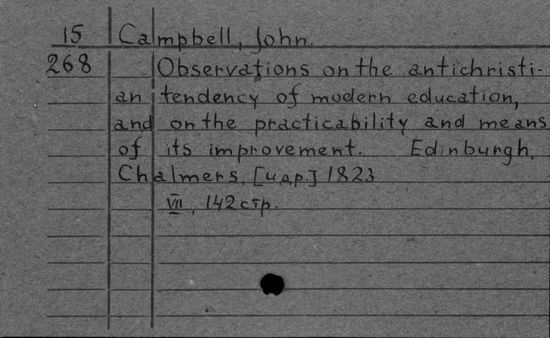 15 Campbell, John.
268 Observations on the antichristi-
an tendency of modern education,
and on the practicability and means
of its improvement. Edinburgh,
Chalmers, [и др.] 1823
VII, 142 стр.